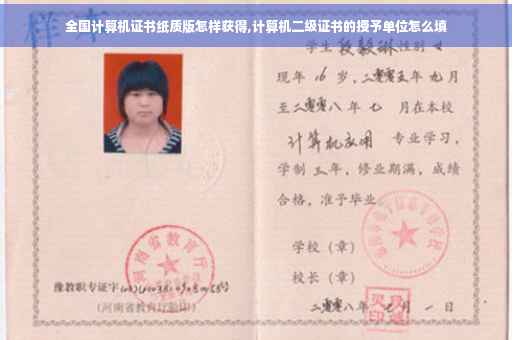 全国计算机证书纸质版怎样获得,计算机二级证书的授予单位怎么填
样本
学生 段毅琳 性别 女
现年 16 岁，二零零五年 九月
至二零零八年 七 月在本校
计算机应用 专业学习，
学制 三 年，修业期满，成绩
合格，准予毕业。
河南省教育厅
学校（章）
校长（章）
豫教职专证字
（河南省教育厅验印）
二零零八年 七 月 一 日